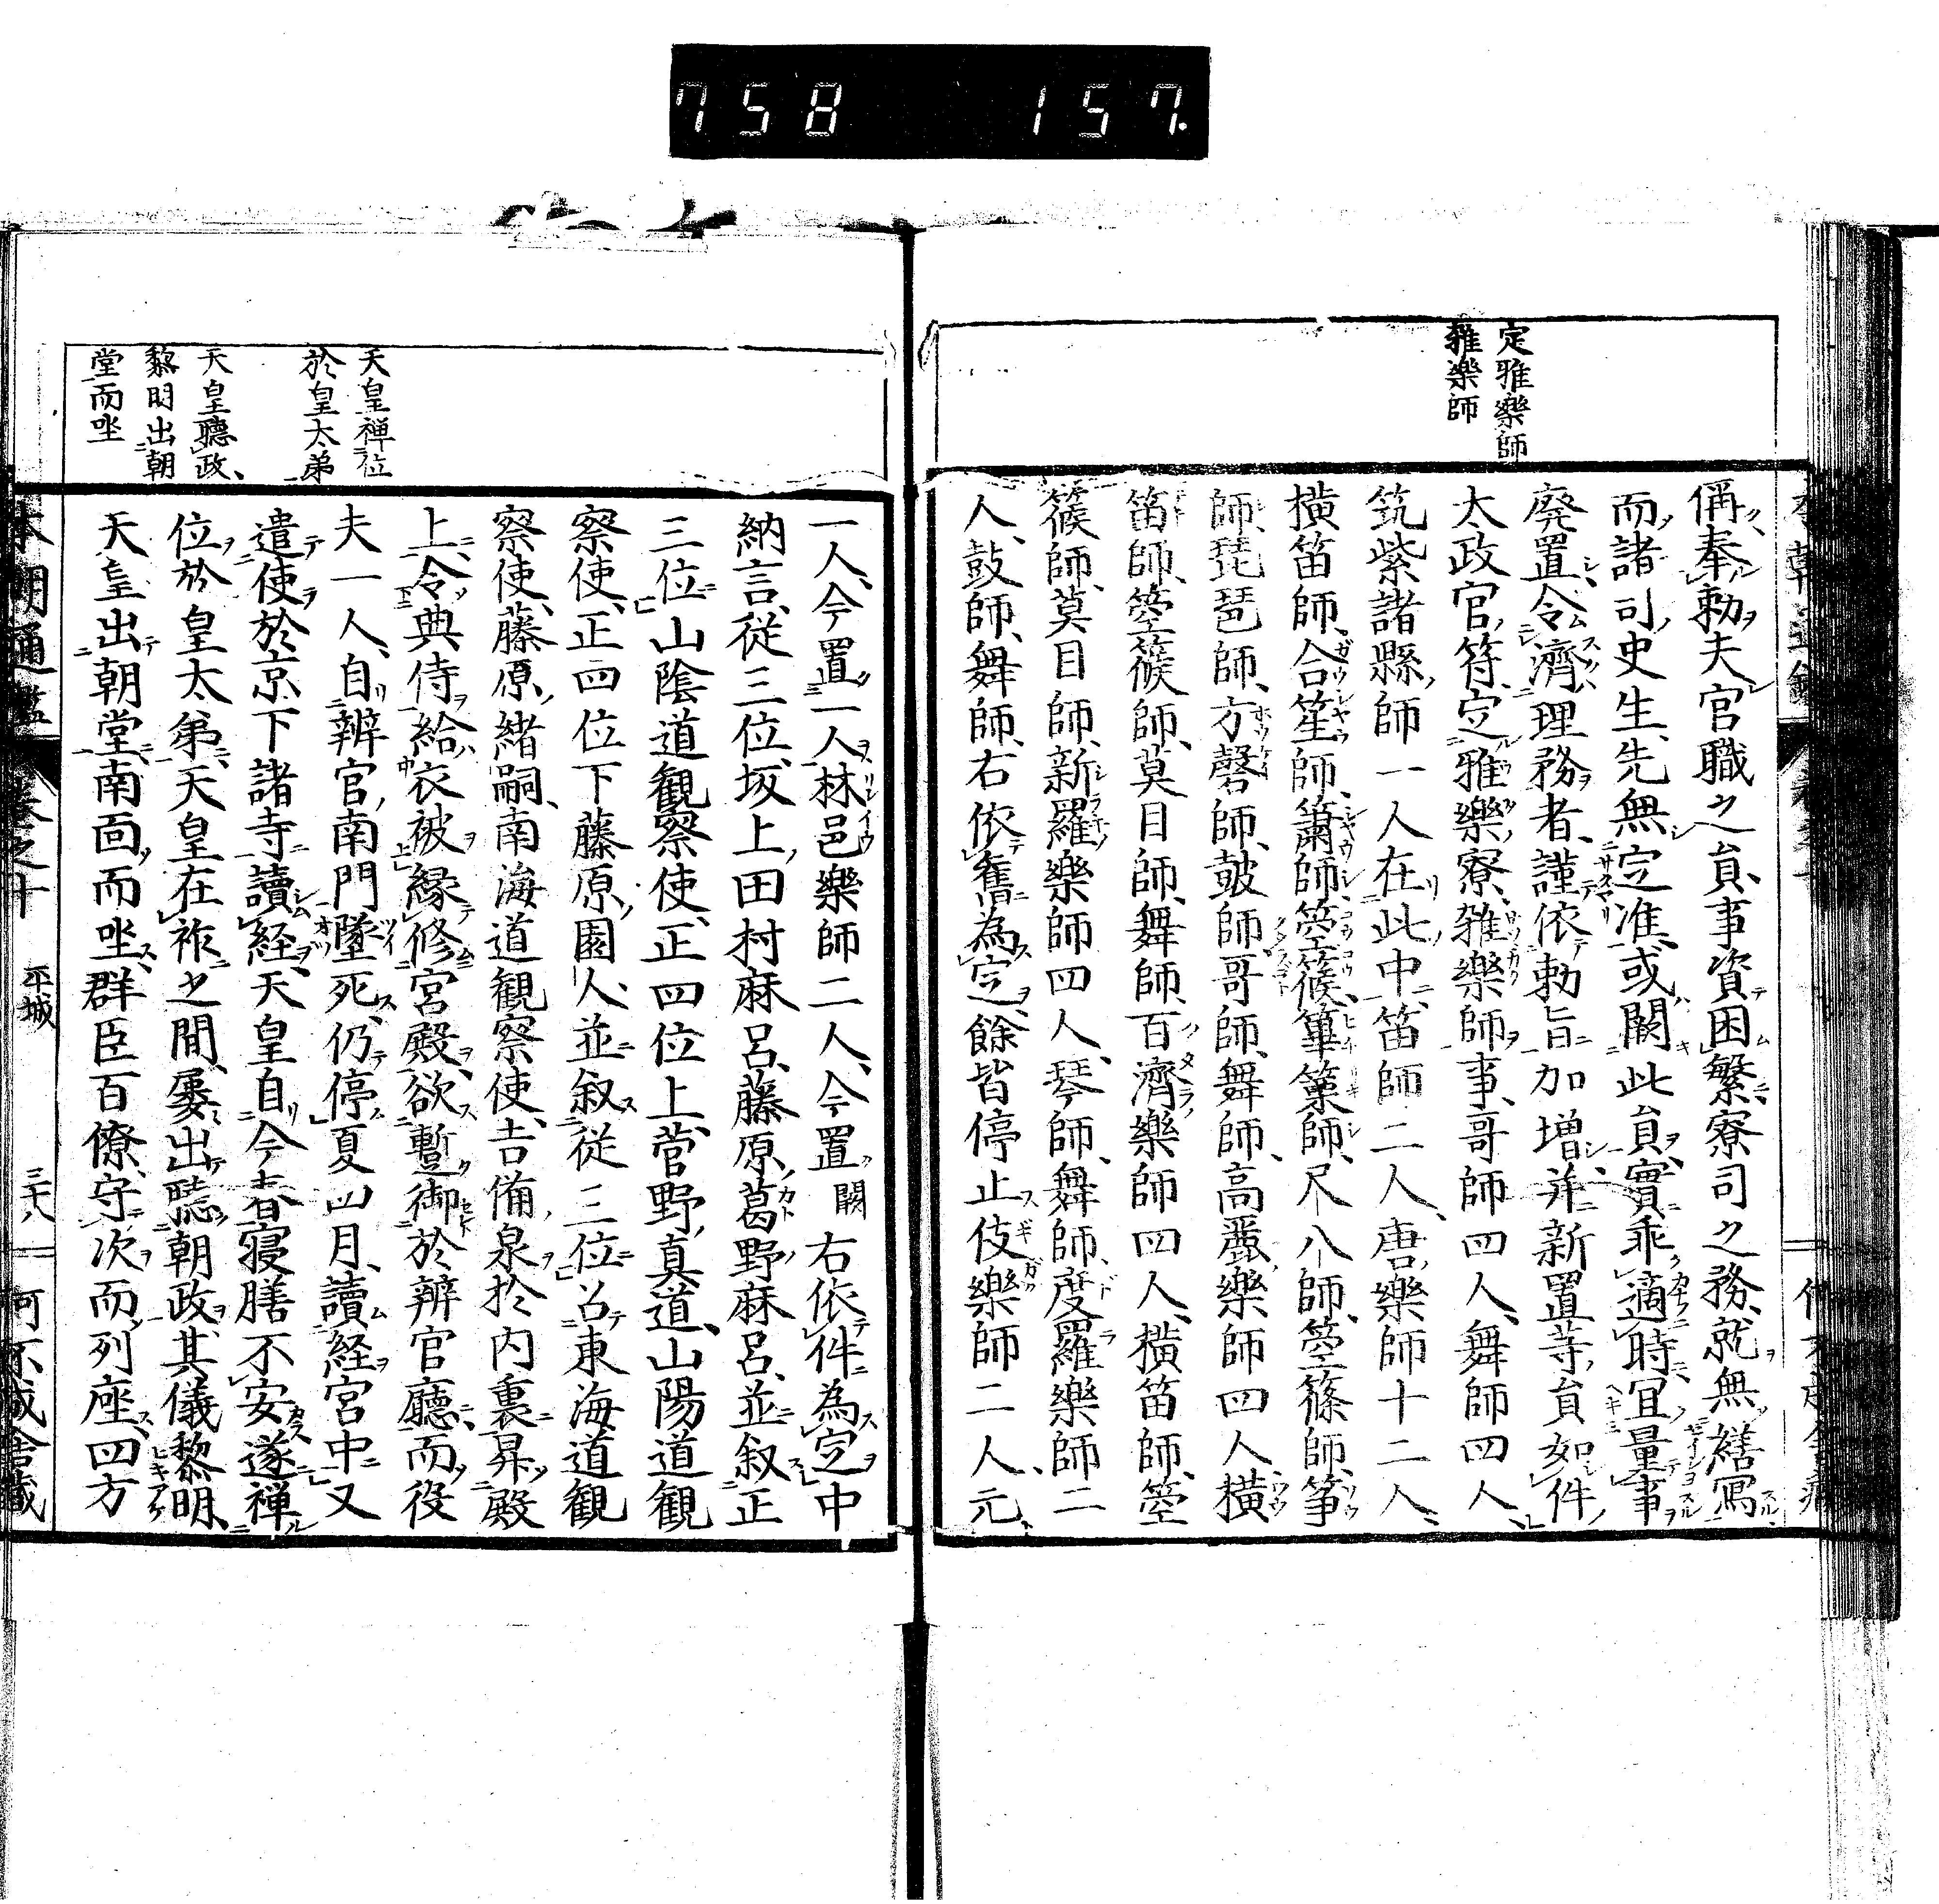 758 157.
定雅樂師
雜樂師
偁奉勅夫官職之員事資困繁寮司之務就無繕寫
而諸司史生先無定准或闕此員實乖適時宜量事
廃置令濟理務者謹依勅旨加増并新置等員如件
太政官符定雅樂寮雜樂師事哥師四人舞師四人
筑紫諸縣師一人在此中笛師二人唐樂師十二人
横笛師合笙師簫師箜篌篳篥師尺八師箜篠師箏
師琵琶師方磬師皷師哥師舞師高麗樂師四人横
笛師箜篌師莫目師舞師百濟樂師四人横笛師箜
篌師莫目師新羅樂師四人琴師舞師度羅樂師二
人鼓師舞師右依舊為定餘皆停止伎樂師二人元
天皇禅位
於皇太弟
天皇聽政
黎明出朝
堂而坐
一人今置一人林邑樂師二人今置闕右依件為定中
納言従三位坂上田村麻呂藤原葛野麻呂並叙正
三位山陰道観察使正四位上菅野真道山陽道観
察使正四位下藤原園人並叙従三位召東海道観
察使藤原緒嗣南海道観察使吉備泉於内裏昇殿
上令典侍給衣被縁修宮殿欲蹔御於辨官廳而役
夫一人自辨官南門墜死仍停夏四月讀経宮中又
遣使於京下諸寺讀経天皇自今春寝膳不安遂禅
位於皇太弟天皇在祚之間屡出聴朝政其儀黎明
天皇出朝堂南面而坐群臣百僚守次而列座四方
本朝通鑑 巻之十 平城 三十八